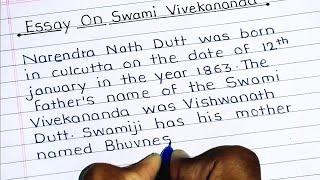 Essay On Swami Vivekananda
Narendra Nath Dutt was born
in culcutta on the date of 12th
january in the year 1863. The
father's name of the Swami
Vivekananda was Vishwanath
Dutt. Swamiji has his mother
named Bhuvnes